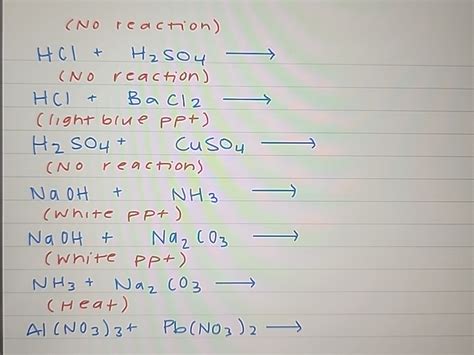 (No reaction)
HCl + H2SO4 ⟶
(No reaction)
HCl + BaCl2 ⟶
(light blue ppt)
H2SO4 + CuSO4 ⟶
(No reaction)
NaOH + NH3 ⟶
(White ppt)
NaOH + Na2CO3 ⟶
(White ppt)
NH3 + Na2CO3 ⟶
(Heat)
Al(NO3)3 + Pb(NO3)2 ⟶